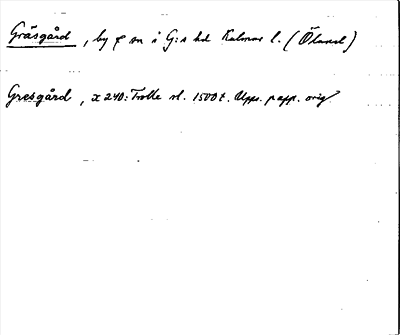 Gräsgård, by o sn i G:s hd Kalmar l. (Öland)
Gresgård, x 240: Trolle sl. 1500 t. Upps. papp. orig.